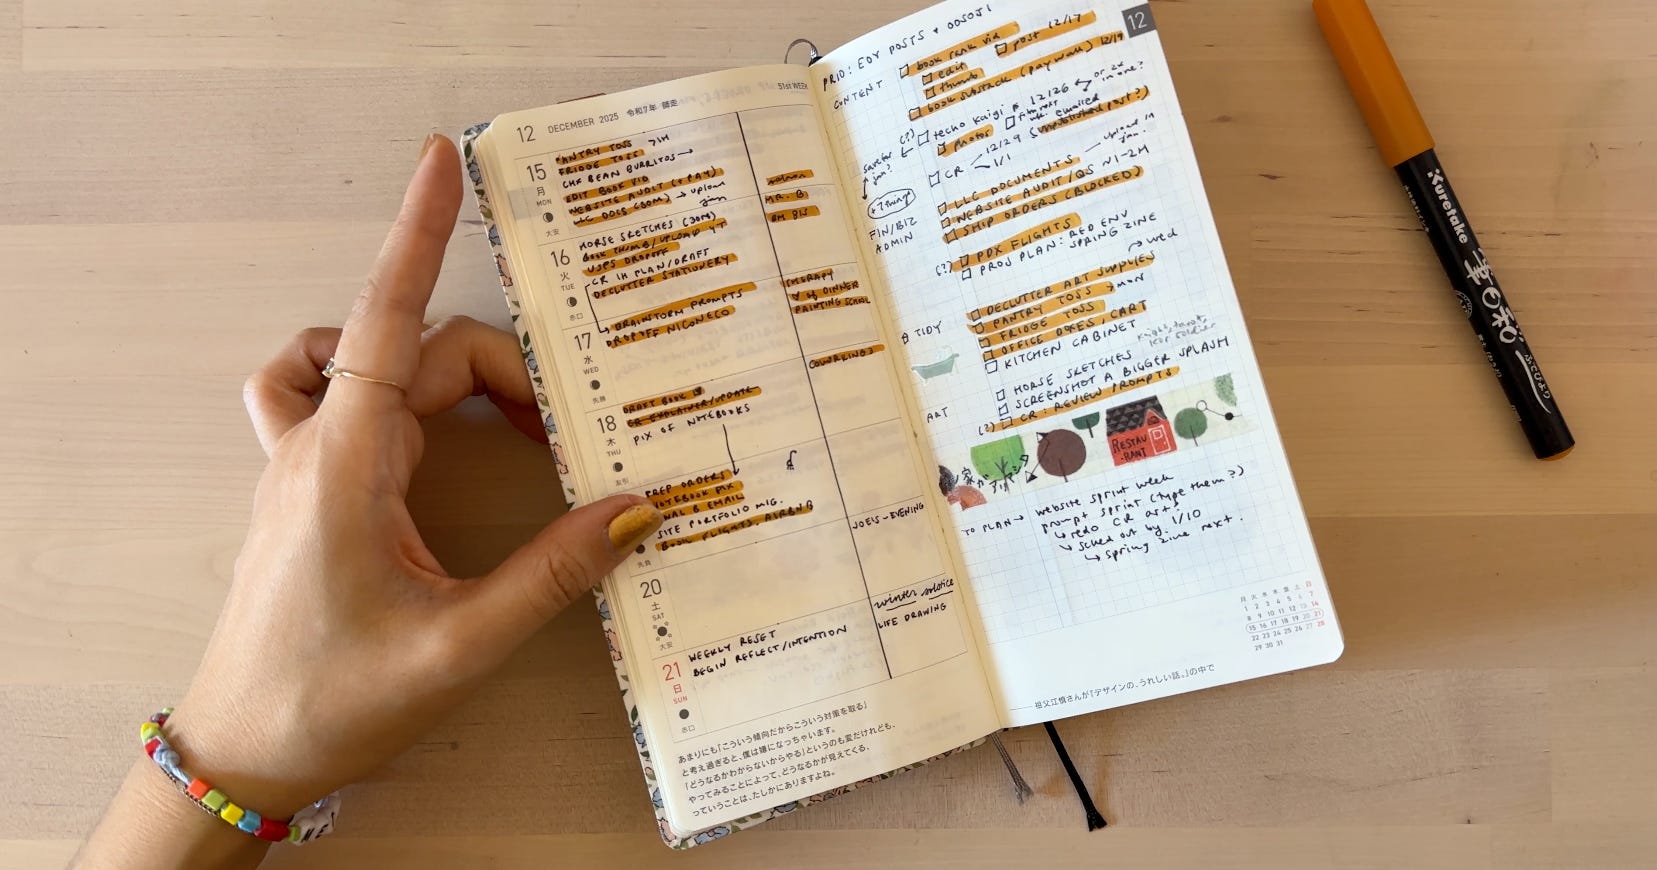 12 DECEMBER 2025 令和7年 師走
51st WEEK
15
月
MON
大安
PANTRY TOSS 71H
FRIDGE TOSS
CHX BEAN BURRITOS →
EDIT BOOK VID
WEBSITE AUDIT (+ PAY)
LLC DOCS (30M) → upload
jan
salmon
MR. B
16
火
TUE
赤口
HORSE SKETCHES (30M)
BOOK THUMB/UPLOAD YT
USPS DROPOFF
CR 1H PLAN/DRAFT
DECLUTTER STATIONERY
THERAPY
DINNER
PAINTING SCHOOL
17
水
WED
先勝
BRAINSTORM PROMPTS
DROPOFF NICONECO
COWORKING
18
木
THU
友引
DRAFT BOOK
CR EXPLAINER/UPDATE
PIX OF NOTEBOOKS
先負
PREP ORDERS
NOTEBOOK PIX
& EMAIL
SITE PORTFOLIO MIG.
BOOK FLIGHTS, AIRBNB
JOEIS - EVENING
20
土
SAT
大安
winter solstice
LIFE DRAWING
21
日
SUN
赤口
WEEKLY RESET
BEGIN REFLECT/INTENTION
あまりにも「こういう傾向だからこういう対策を取る」
と考え過ぎると、僕は嫌になっちゃいます。
「どうなるかわからないからやる」というのも変だけれども、
やってみることによって、どうなるかが見えてくる、
っていうことは、たしかにありますよね。
12
PRIO: EOY POSTS + OOSOJI
CONTENT
book rank vid
edit
post 12/17
thumb
book substack (paywall) 12/19
(?) techo kaigi 12/26 ← or 2x
in one?
photos
emailed
(unpublished post?)
CR 12/29
1/1
save for
jan?
+ Things
FIN/BIZ
ADMIN
LLC DOCUMENTS — upload in
jan.
WEBSITE AUDIT/QS ~1-2H
SHIP ORDERS (BLOCKED)
(?) PDX FLIGHTS
PROJ PLAN: RED ENV
SPRING ZINE
TIDY
DECLUTTER ART SUPPLIES → wed
PANTRY TOSS → MON
FRIDGE TOSS
OFFICE BOXES/CART
KITCHEN CABINET
ART
HORSE SKETCHES knight, tarot,
SCREENSHOT A BIGGER SPLASH
(?) CR: REVIEW PROMPTS
RESTAU
-RANT
TO PLAN → website sprint week
prompt sprint (type them?)
↳ redo CR art?
↳ sched out by 1/10
↳ spring zine next.
月 火 水 木 金 土 日
1 2 3 4 5 6 7
8 9 10 11 12 13 14
15 16 17 18 19 20 21
22 23 24 25 26 27 28
29 30 31
祖父江慎さんが『デザインの、うれしい話。』の中で
Kuretake